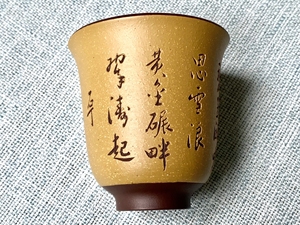 思雪浪
黄金碾畔
翠濤起